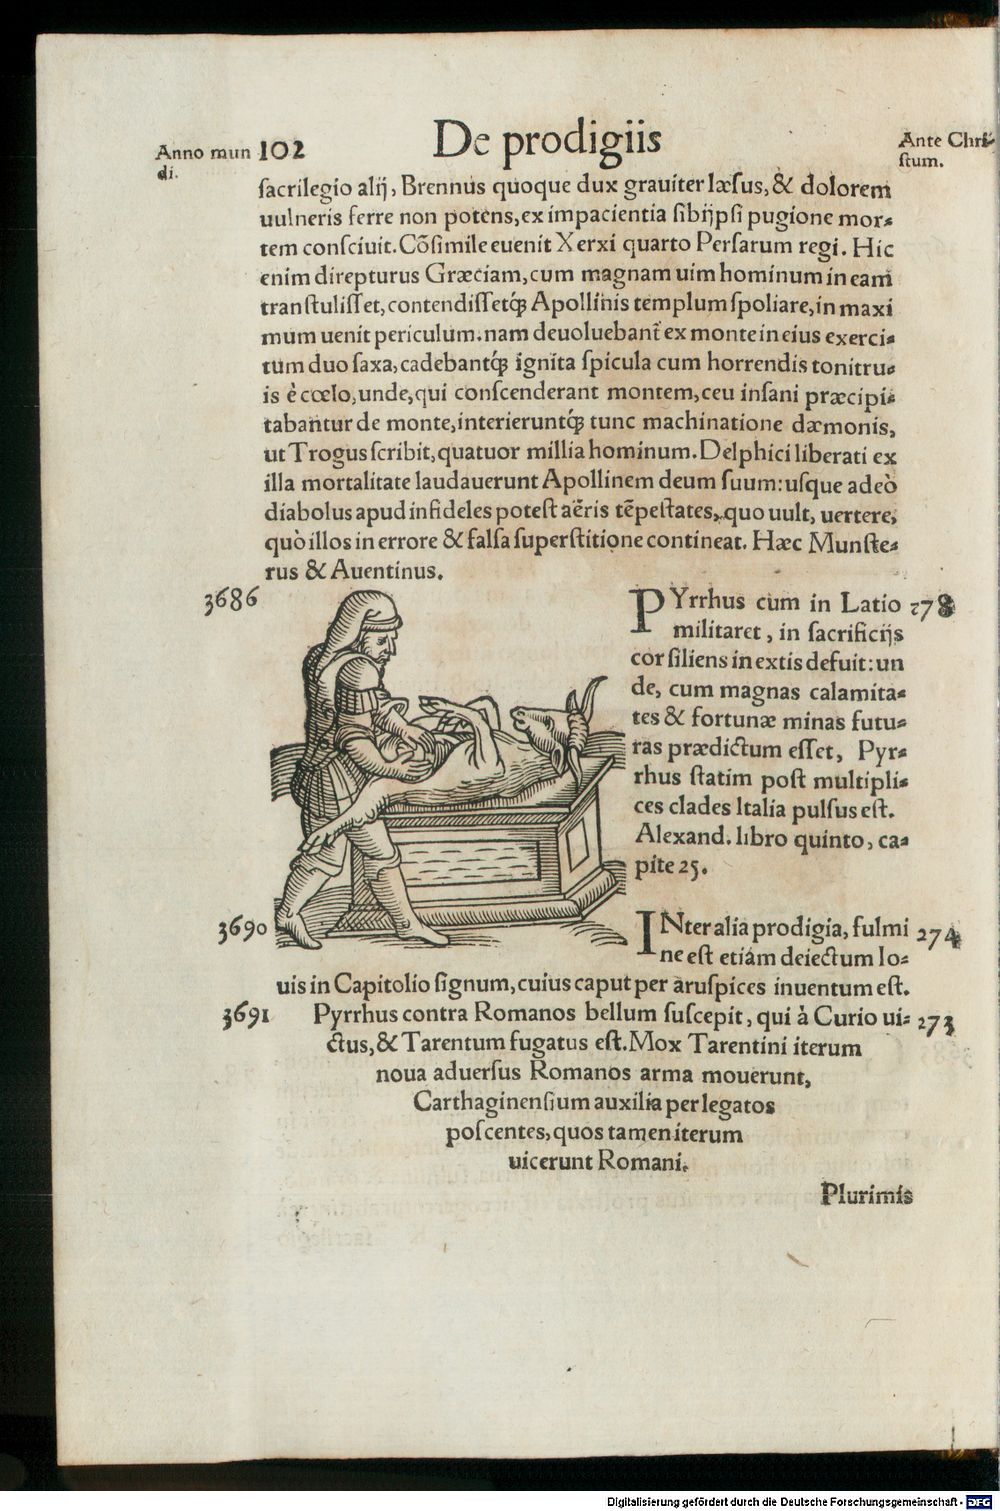 De prodigiis
Anno mun 102
di.
Ante Chri-
stum.
sacrilegio alij, Brennus quoque dux grauiter læsus, & dolorem
uulneris ferre non potens, ex impacientia sibijpsi pugione mor-
tem consciuit. Cõsimile euenit Xerxi quarto Persarum regi. Hic
enim direpturus Græciam, cum magnam uim hominum in eam
transtulisset, contendissetq́ʒ Apollinis templum spoliare, in maxi
mum uenit periculum. nam deuoluebant̃ ex monte in eius exerci-
tum duo saxa, cadebantq́ʒ ignita spicula cum horrendis tonitru-
is è cœlo, unde, qui conscenderant montem, ceu insani præcipi-
tabantur de monte, interieruntq́ʒ tunc machinatione dæmonis,
ut Trogus scribit, quatuor millia hominum. Delphici liberati ex
illa mortalitate laudauerunt Apollinem deum suum: usque adeò
diabolus apud infideles potest aëris tẽpestates, quo uult, uertere,
quò illos in errore & falsa superstitione contineat. Hæc Munste-
rus & Auentinus.
3686
PYrrhus cum in Latio 278
militaret, in sacrificijs
cor siliens in extis defuit: un
de, cum magnas calamita-
tes & fortunæ minas futu-
ras prædictum esset, Pyr-
rhus statim post multipli-
ces clades Italia pulsus est.
Alexand. libro quinto, ca-
pite 25.
3690
INter alia prodigia, fulmi 274
ne est etiam deiectum Io-
uis in Capitolio signum, cuius caput per aruspices inuentum est.
3691 Pyrrhus contra Romanos bellum suscepit, qui à Curio ui- 273
ctus, & Tarentum fugatus est. Mox Tarentini iterum
noua aduersus Romanos arma mouerunt,
Carthaginensium auxilia per legatos
poscentes, quos tamen iterum
uicerunt Romani.
Plurimis
Digitalisierung gefördert durch die Deutsche Forschungsgemeinschaft - DFG